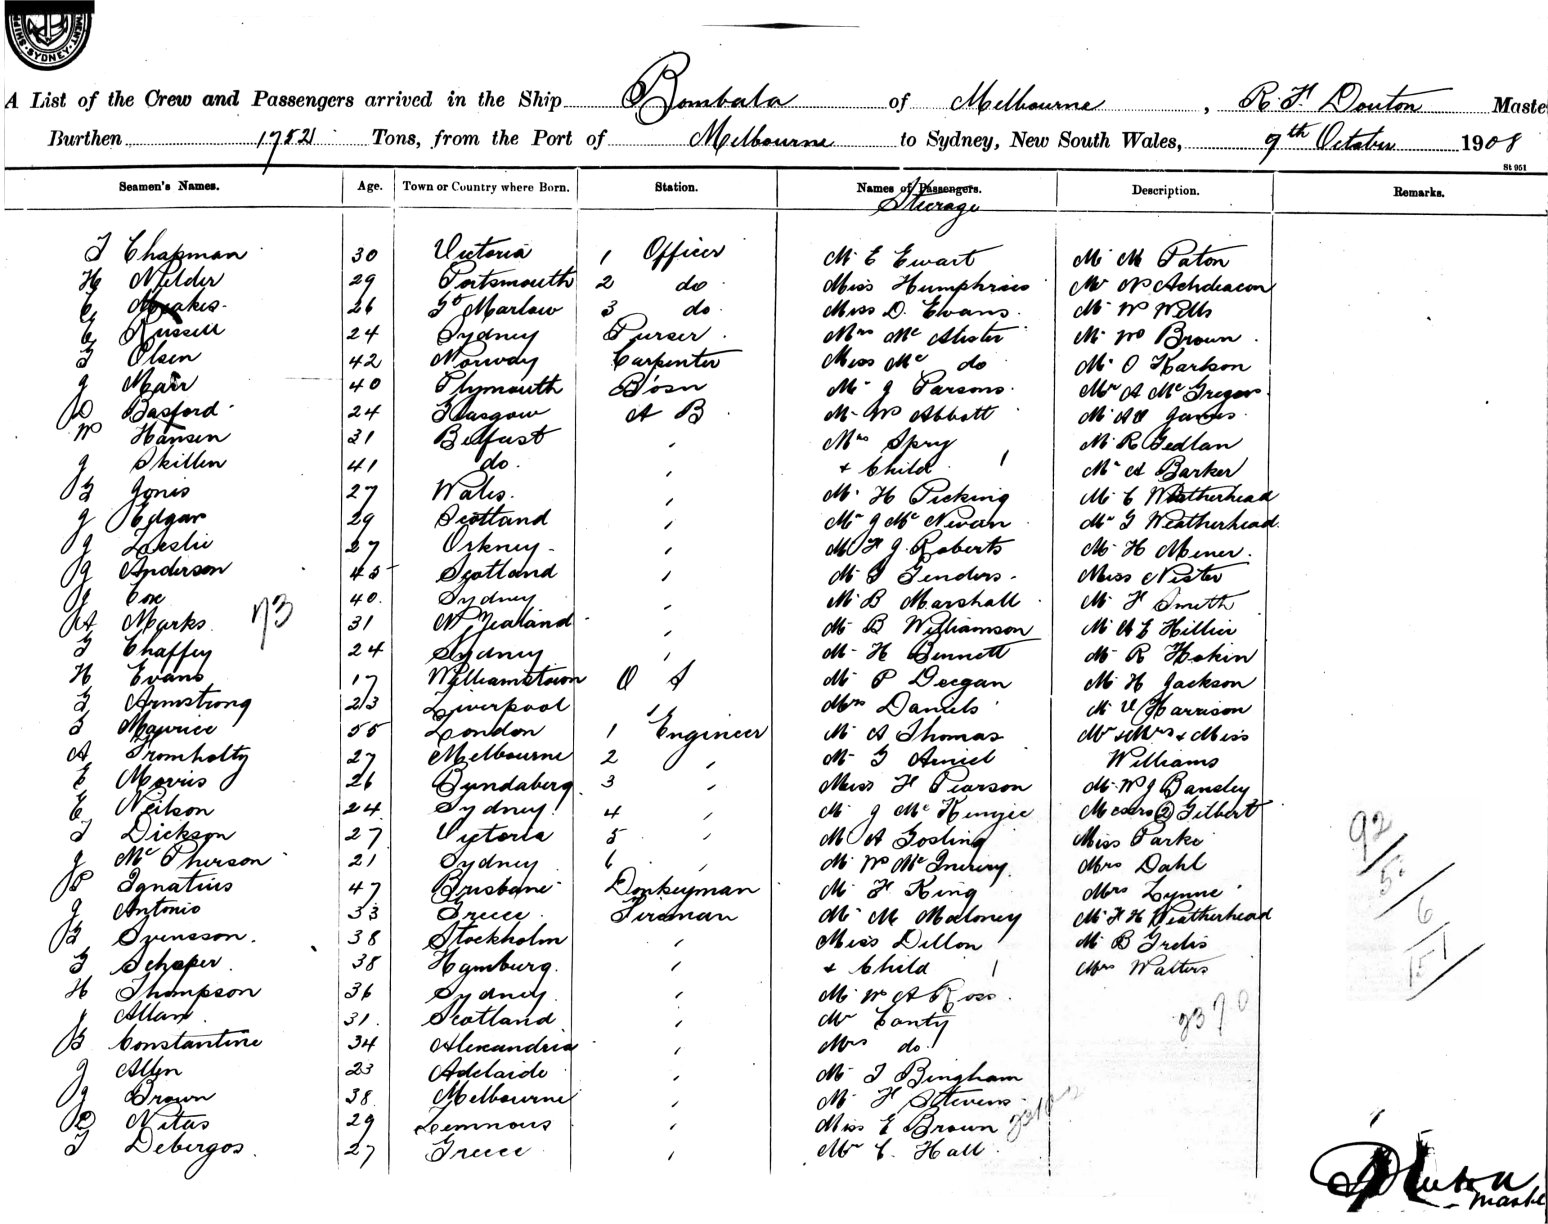 SYDNEY
A List of the Crew and Passengers arrived in the Ship Bombala of Melbourne, R. F. Douton Maste
Burthen 1752 Tons, from the Port of Melbourne to Sydney, New South Wales, 9th October 1908
St 951
Seamen's Names. Age. Town or Country where Born. Station. Names of Passengers. Description. Remarks.
Steerage
T Chapman 30 Victoria 1 Officer Mr E Ewart Mr M Paton
H Nilder 29 Portsmouth 2 do Miss Humphries Mr N Achdeacon
C Meakes 26 Gt Marlow 3 do Miss D. Evans Mr W Wells
C Russell 24 Sydney Purser Mrs Mc Alister Mr Wm Brown
G Olsen 42 Norway Carpenter Miss Mc do Mr O Karlson
J Marr 40 Plymouth Bosn Mr J Parsons Mr A McGregor
D Basford 24 Glasgow A B Mr W Abbott Mr James
W Hansen 31 Belfast Mrs Spry Mr R Gedlan
J Skillen 41 do. + Child 1 Mr A Barker
G Jones 27 Wales. Mr H Picking Mr C Weatherhead
J Edgar 29 Scotland Mr J Mc Nivan Mr G Weatherhead
J Leslie 27 Orkney Mr F J Roberts Mr H Mener
J Anderson 45 Scotland Mr Genders Miss Nister
J Cox 40 Sydney Mr B Marshall Mr F Smith
A Marks 73 31 N Zealand Mr B Williamson Mr A E Hillier
G Chaffey 24 Sydney Mr H Bennett Mr R Hokin
H Evans 17 Williamstown O S Mr P Deegan Mr H Jackson
G Armstrong 23 Liverpool Mrs Daniels Mr V Harrison
G Maurice 55 London 1 Engineer Mr A Thomas Mr + Mrs + Miss
A Tromholty 27 Melbourne 2 Mr G Williams
E Morris 26 Bundaberg 3 Miss F Pearson Mr W J Bansley
E Neilson 24 Sydney 4 Mr J Mc Kenzie Messrs 2 Gilbert
T Dickson 27 Victoria 5 Mr A Gosling Miss Parke
J McPherson 21 Sydney 6 Mr W Mc Mrs Dahl
P Ignatius 47 Brisbane Donkeyman Mr F King Mrs Lynne
J Antonio 33 Greece Fireman Mr M Maloney Mr F H Weatherhead
G Svensson 38 Stockholm Miss Dillon Mr B Gredis
G Schaper 38 Hamburg + Child 1 Mrs Walters
H Thompson 36 Sydney Mr W A Ross
J Allan 31 Scotland Mr Canty
B Constantine 34 Alexandria Mrs do
J Allen 23 Adelaide Mr T Bingham
J Brown 38 Melbourne Mr F Stevens
D Nitas 29 Lemnous Miss E Brown
T Debergos 27 Greece Mr C Hall
92
5
6
151
2370
Master